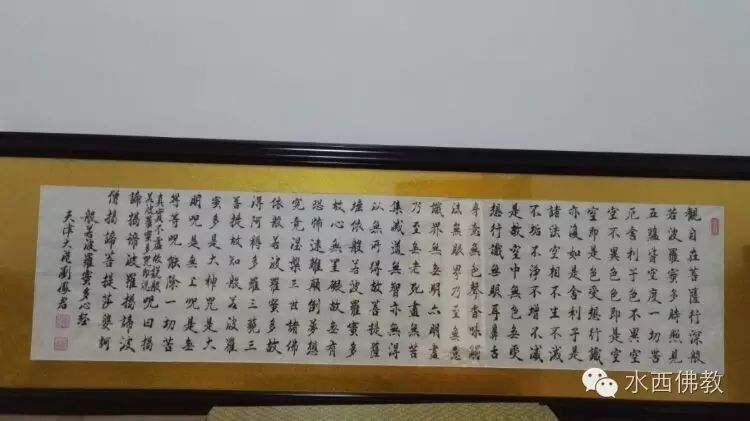 觀自在菩薩行深般
若波羅蜜多時照見
五蘊皆空度一切苦
厄舍利子色不異空
空不異色色即是空
空即是色受想行識
亦復如是舍利子是
諸法空相不生不滅
不垢不淨不增不減
是故空中無色無受
想行識無眼耳鼻舌
身意無色聲香味觸
法無眼界乃至無意
識界無無明明盡
乃至無老死盡無苦
集滅道無智亦無得
以無所得故菩提薩
埵依般若波羅蜜多
故心無罣礙故無有
恐怖遠離顛倒夢想
究竟涅槃三世諸佛
依般若波羅蜜多故
得阿耨多羅三藐三
菩提故知般若波羅
蜜多是大神咒是大
明呪是無上呪是無
等等呪能除一切苦
真實不虛故説般
若波羅蜜多呪即说
呪曰揭
諦揭諦波羅揭諦波
僧揭諦菩提莎婆訶
般若波羅蜜多心經
天津大港劉鳳君
水西佛教